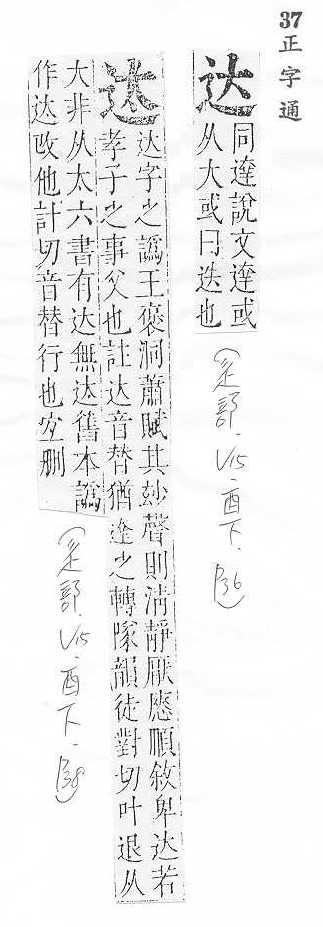 37正字通
达
同達說文達或
从大或曰迭也
(辵部.V15.酉下.P36)
迏
达字之譌王褒洞蕭賦其妙聲則淸靜厭㥷順敘卑达若
孝子之事父也註达音替猶逹之轉隊韻徒對切叶退从
大非从太六書有达無迏舊本譌
作迏改他計切音替行也宐删
(辵部.V15.酉下.P38)